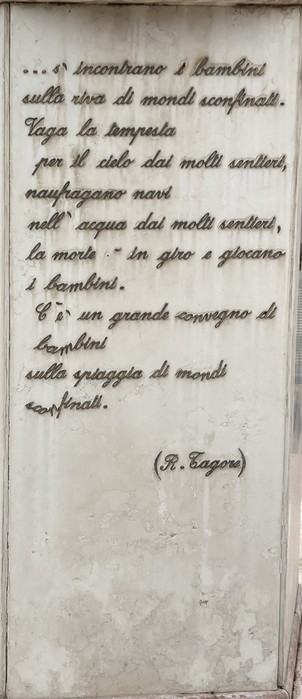 ...s' incontrano i bambini
sulla riva di mondi sconfinati.
Vaga la tempesta
per il cielo dai molti sentieri,
naufragano navi
nell' acqua dai molti sentieri,
la morte è in giro e giocano
i bambini.
C'è un grande convegno di
bambini
sulla spiaggia di mondi
sconfinati.
(R. Tagore)